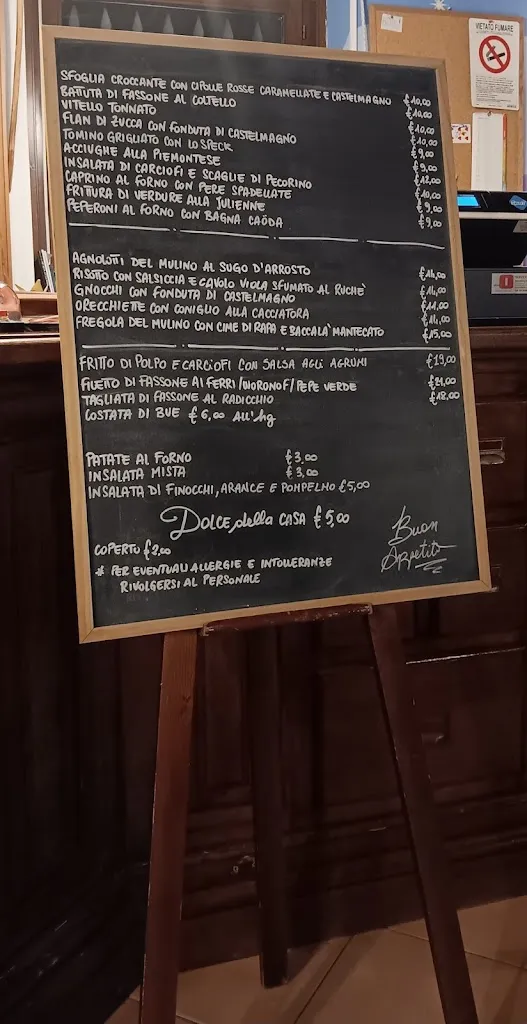 VIETATO FUMARE
SFOGLIA CROCCANTE CON CIPOLLE ROSSE CARAMELLATE E CASTELMAGNO €10,00
BATTUTA DI FASSONE AL COLTELLO €10,00
VITELLO TONNATO €10,00
FLAN DI ZUCCA CON FONDUTA DI CASTELMAGNO €10,00
TOMINO GRIGLIATO CON LO SPECK €9,00
ACCIUGHE ALLA PIEMONTESE €9,00
INSALATA DI CARCIOFI E SCAGLIE DI PECORINO €12,00
CAPRINO AL FORNO CON PERE SPADELLATE €10,00
FRITTURA DI VERDURE ALLA JULIENNE €9,00
PEPERONI AL FORNO CON BAGNA CAÖDA €9,00
AGNOLOTTI DEL MULINO AL SUGO D'ARROSTO €14,00
RISOTTO CON SALSICCIA E CAVOLO VIOLA SFUMATO AL RUCHÈ €14,00
GNOCCHI CON FONDUTA DI CASTELMAGNO €14,00
ORECCHIETTE CON CONIGLIO ALLA CACCIATORA €14,00
FREGOLA DEL MULINO CON CIME DI RAPA E BACCALÀ MANTECATO €15,00
FRITTO DI POLPO E CARCIOFI CON SALSA AGLI AGRUMI €19,00
FILETTO DI FASSONE AI FERRI/WORONOF/PEPE VERDE €21,00
TAGLIATA DI FASSONE AL RADICCHIO €18,00
COSTATA DI BUE €6,00 ALL'hg
PATATE AL FORNO €3,00
INSALATA MISTA €3,00
INSALATA DI FINOCCHI, ARANCE E POMPELMO €5,00
DOLCE della CASA €5,00
COPERTO €2,00
* PER EVENTUALI ALLERGIE E INTOLLERANZE
RIVOLGERSI AL PERSONALE
Buon
Appetito